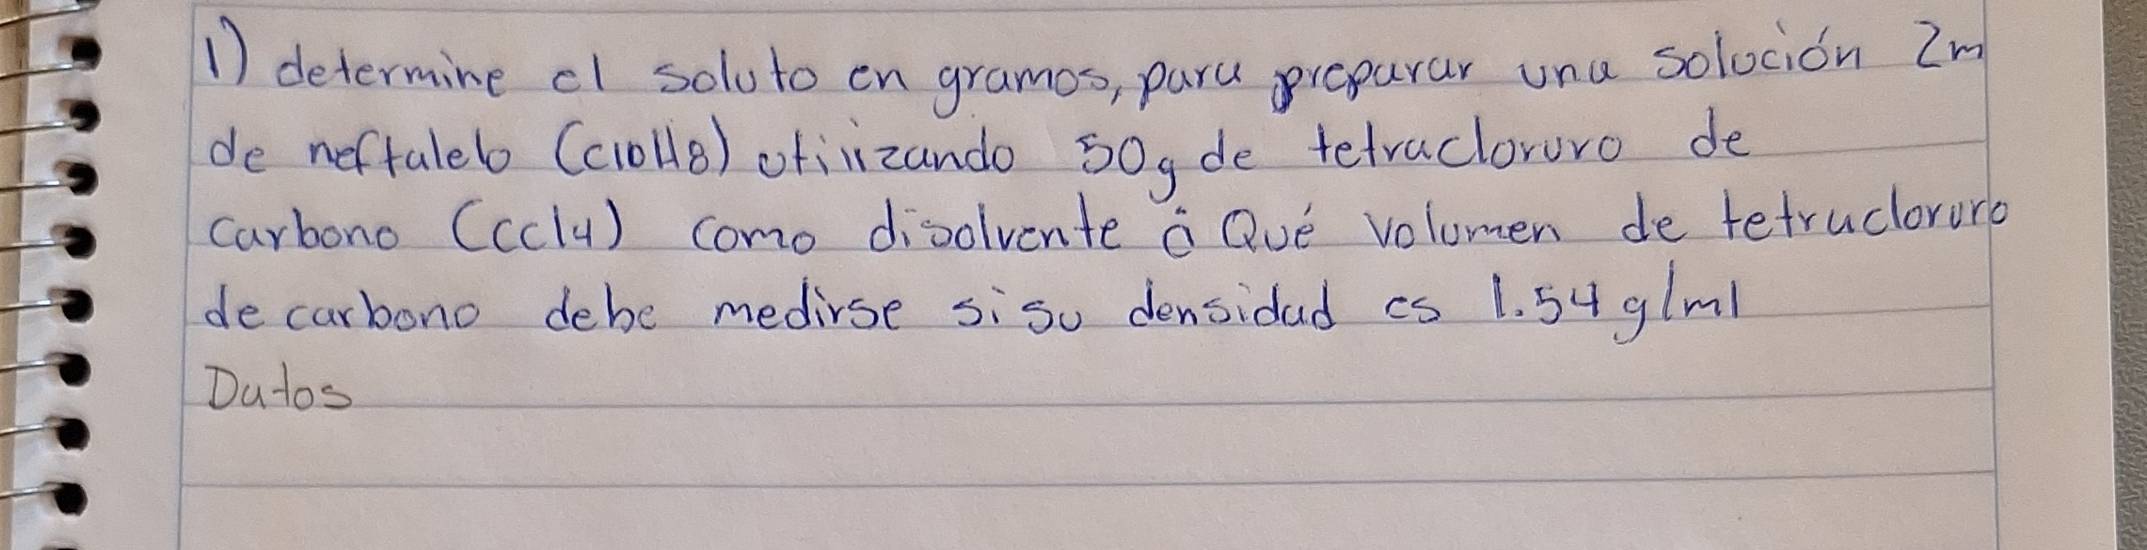 1) determine el soluto en gramos, para preparar una solución 2m
de neftalelo (C10H8) utilizando 50g de tetracloruro de
carbono (ccl4) como disolvente ¿ Qué volumen de tetracloruro
de carbono debe medirse si su densidad es 1.54 g/ml
Datos